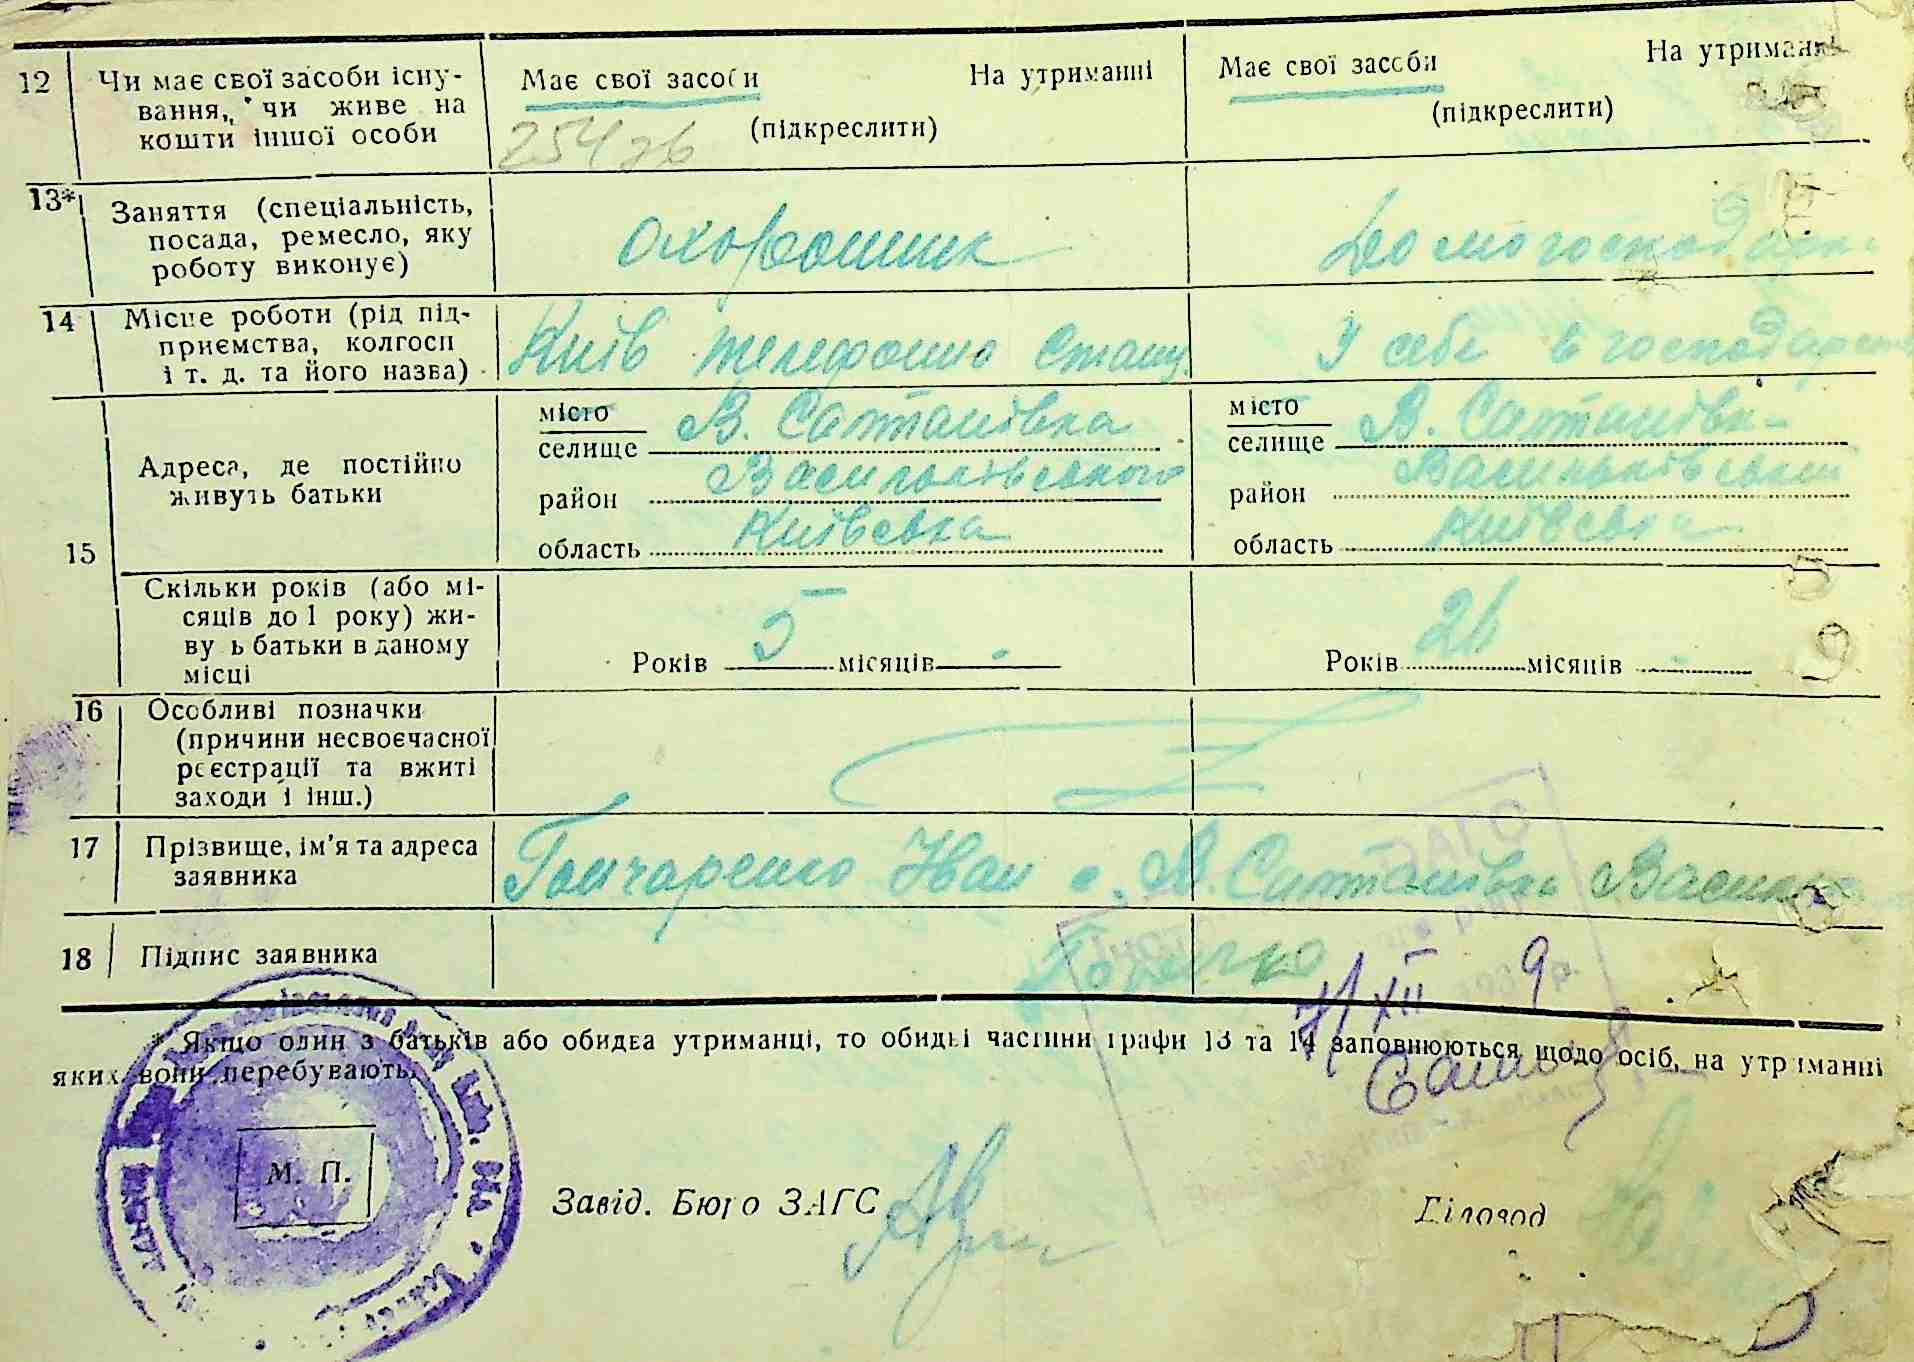 12 Чи має свої засоби існу-
вання, чи живе на
кошти іншої особи
Має свої засоби На утриманні
(підкреслити)
254
Має свої засоби На утриманні
(підкреслити)
13* Заняття (спеціальність,
посада, ремесло, яку
роботу виконує)
охоронник
Домогосподарка
14 Місце роботи (рід під-
приємства, колгосп
і т. д. та його назва)
Київ телефонно станц.
У себе в господарстві
15 Адреса, де постійно
живуть батьки
місто
селище В. Солтанівка
район Васильківського
область Київська
місто
селище В. Солтанівка
район Васильківський
область Київська
Скільки років (або мі-
сяців до 1 року) жи-
вуть батьки в даному
місці
Років 5 місяців -
Років 26 місяців -
16 Особливі позначки
(причини несвоєчасної
реєстрації та вжиті
заходи і інш.)
17 Прізвище, ім'я та адреса
заявника
Гончаренко Иван с. В. Солтанівка Васильк
18 Підпис заявника
ЗАГС
XII 9
* Якщо один з батьків або обидва утриманці, то обидві частини графи 13 та 14 заповнюються щодо осіб, на утриманні
яких вони перебувають.
М. П.
Завід. Бюро ЗАГС
Діловод